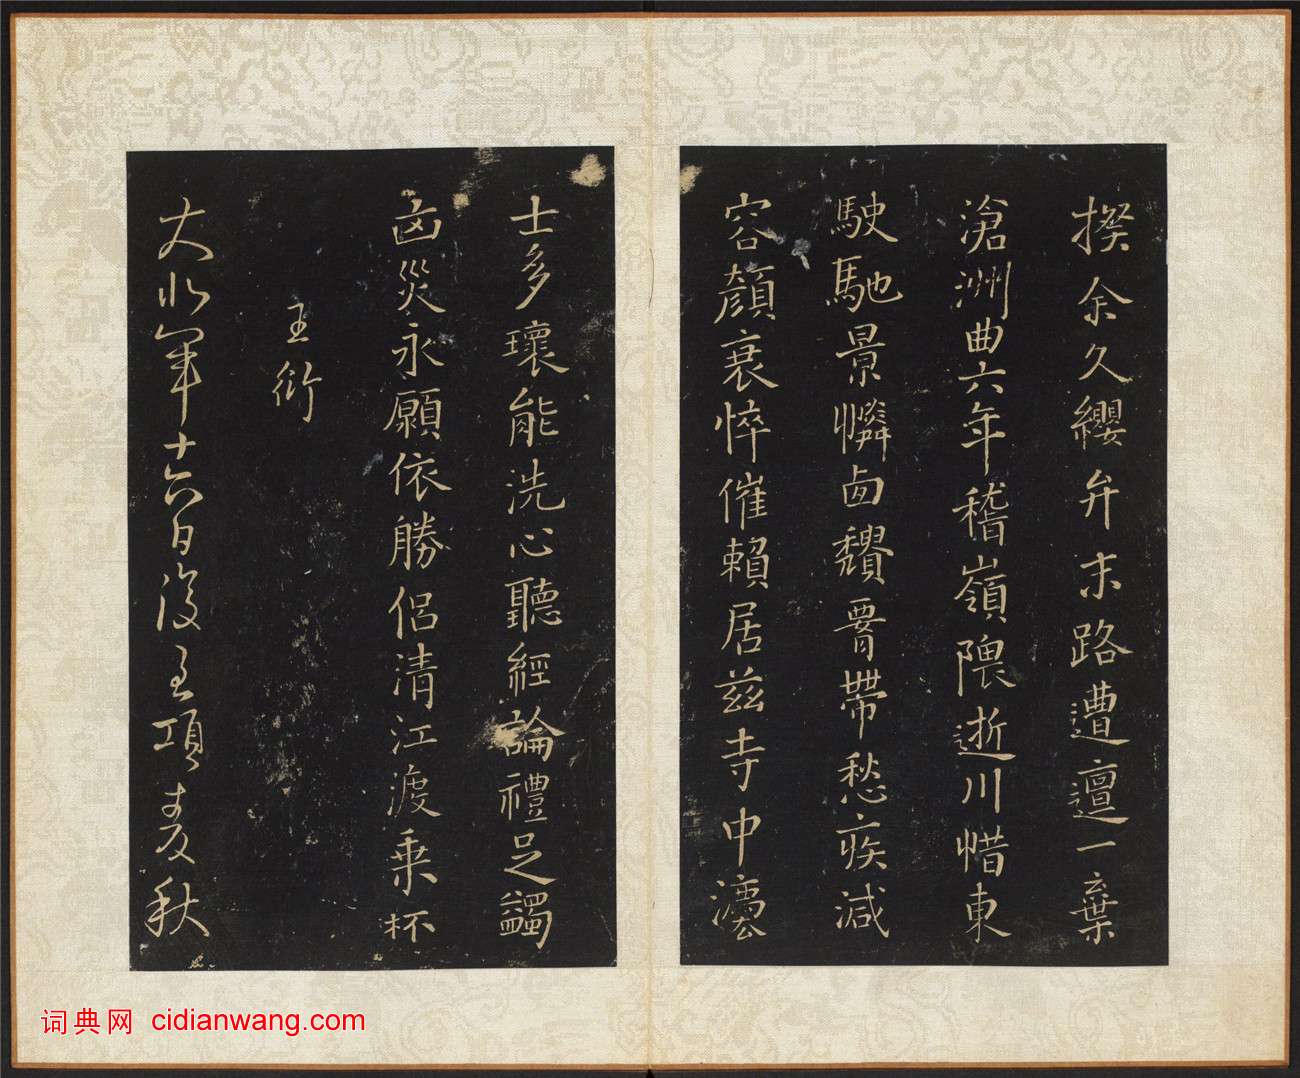 揆余久纓弁末路遭邅一棄
滄洲曲六年稽嶺隈逝川惜東
駛馳景憐西頹腎帶愁疾減
容顏衰悴催賴居茲寺中瀍
士多瓌能洗心聽經論禮足蠲
凶災永願依勝侶清江渡乘杯
王衍
大水軍十六日復至項春秋
词典网 cidianwang.com